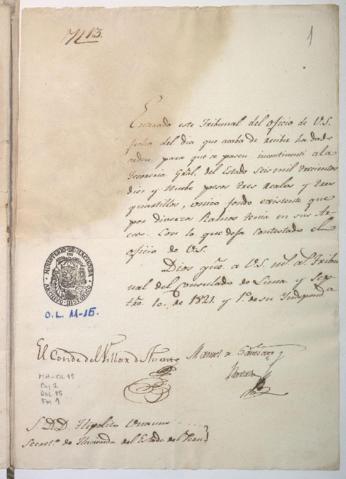 7413.
1
Enterado este Tribunal del oficio de V.S.
fecha del dia que acaba de recibir ha dado
orden, para que se pasen incontinenti a la
Tesoreria Gral. del Estado seis mil
diez y nueve pesos tres reales y tres
quartillos, unico fondo existente que
por diversos Ramos tenia en sus Ar-
cas. Con lo que dexa contestado el
oficio de V.S.
Dios gue. a V.S. ms. as. Tribu-
nal del Consulado de Lima y Sep-
tre. 10. de 1821. y 1o. de su Independa.
MINISTERIO DE HACIENDA
ARCHIVO HISTORICO
O.L. 11-15.
El Conde del Villar de Fuente Manuel de
MH-OL 11
Caj. 2
Doc. 15
Fol 1
S. D. D. Hipolito Unanue
Secreto. de Hacienda del Estado del Peru